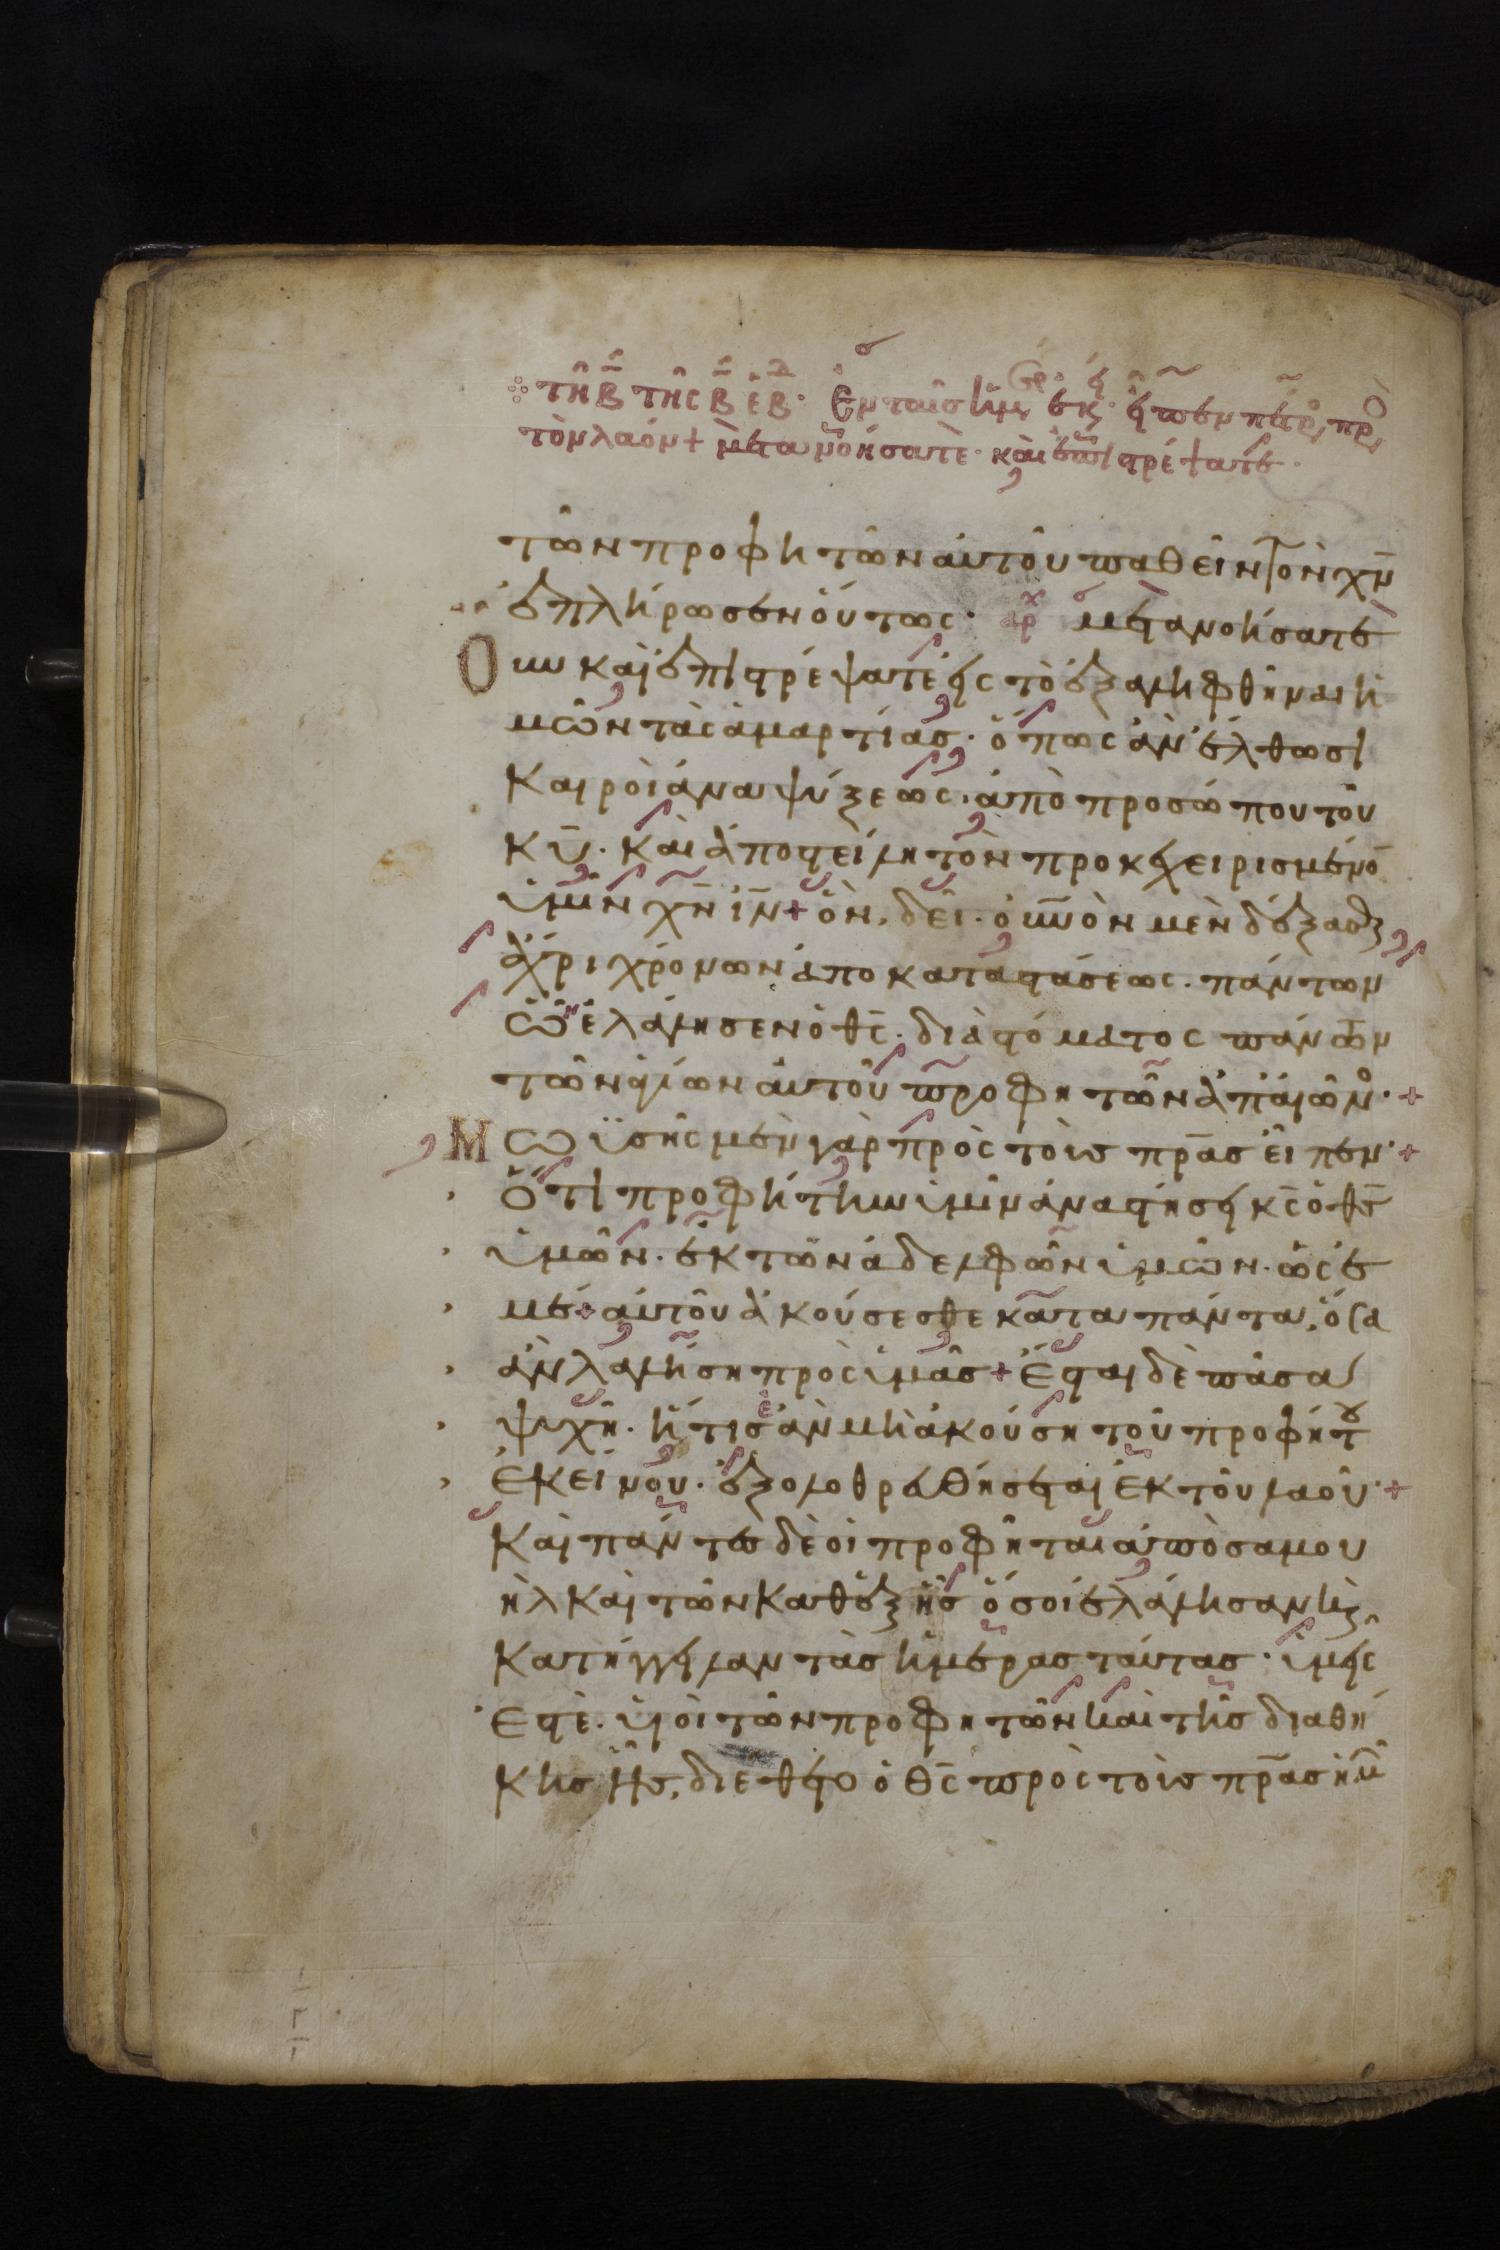 τῆ Β τῆς Β ἑΒ· Ἐν ταῖς ἡμ ἐκ· εἶπεν πέτρ πρ
τὸν λαόν + μετανοήσατε· καὶ ἐπιστρέψατε·
τῶν προφητῶν αὐτοῦ παθεῖν τὸν χ̅ν̅
ἐπλήρωσεν οὕτως· ἀρχ μετανοήσατε
Οὖν καὶ ἐπιστρέψατε εἰς τὸ ἐξαλειφθῆναι ὑ
μῶν τὰς ἁμαρτίας· ὅπως ἂν ἔλθωσι
Καιροὶ ἀναψύξεως· ἀπὸ προσώπου τοῦ
κ̅υ̅· καὶ ἀποστείλη τὸν προκεχειρισμένο̅
ὑμῖν χ̅ν̅ ι̅ν̅ + ὃν, δεῖ· ο̅υ̅νὸν μὲν δέξασθ
ἄχρι χρόνων ἀποκαταστάσεως· πάντων
ὧν ἐλάλησεν ὁ θ̅ς̅· διὰ στόματος πάντων
τῶν ἁγίων αὐτοῦ προφητῶν ἀπ' αἰῶν· +
Μωϋσῆς μὲν γὰρ πρὸς τοὺς π̅ρ̅ας εἶπεν· +
Ὅτι προφήτην ὑμῖν ἀναστήσει κ̅ς̅ ὁ θ̅ς̅
ὑμῶν· ἐκ τῶν ἀδελφῶν ὑμῶν· ὡς ἐ
μέ + αὐτοῦ ἀκούσεσθε κατὰ πάντα, ὅσα
ἂν λαλήση πρὸς ὑμᾶς + Ἔσται δὲ πᾶσα
ψυχὴ· ἥτις ἐὰν μὴ ἀκούση τοῦ προφήτου
ἐκείνου· ἐξολοθρευθήσεται ἐκ τοῦ λαοῦ· +
Καὶ πάντες δὲ οἱ προφῆται ἀπὸ σαμου
ὴλ καὶ τῶν καθεξῆς ὅσοι ἐλάλησαν κ
κατήγγειλαν τὰς ἡμέρας ταύτας· ὑμεῖς
Ἐστὲ· υἱοὶ τῶν προφητῶν καὶ τῆς διαθή
κης ἧς, διέθετο ὁ θ̅ς̅ πρὸς τοὺς π̅ρ̅ας ἡμ